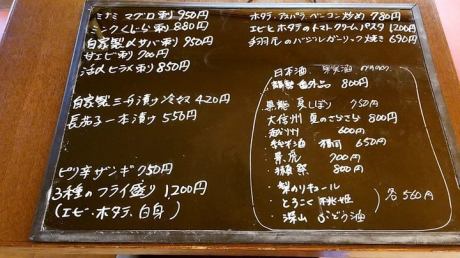 ミナミ マグロ刺 950円
ミンククじら刺 880円
自家製〆サバ刺 950円
甘エビ刺 700円
活〆ヒラメ刺 850円
自家製三升漬け冷奴 420円
長芋一本漬け 550円
ピリ辛ザンギ 750円
3種のフライ盛り 1200円
(エビ、ホタテ、白身)
ホタテ、アスパラ、ベーコン炒め 780円
エビとホタテのトマトクリームパスタ 1200円
手羽先のバジルガーリック焼き 690円
日本酒
番外品 800円
黒龍 夏しぼり 750円
大信州 夏のさらさら 800円
越州 600円
純米酒 650円
700円
獺祭 800円
梨のリキュール
とろこく 桃姫
深山 ぶどう酒
各 560円